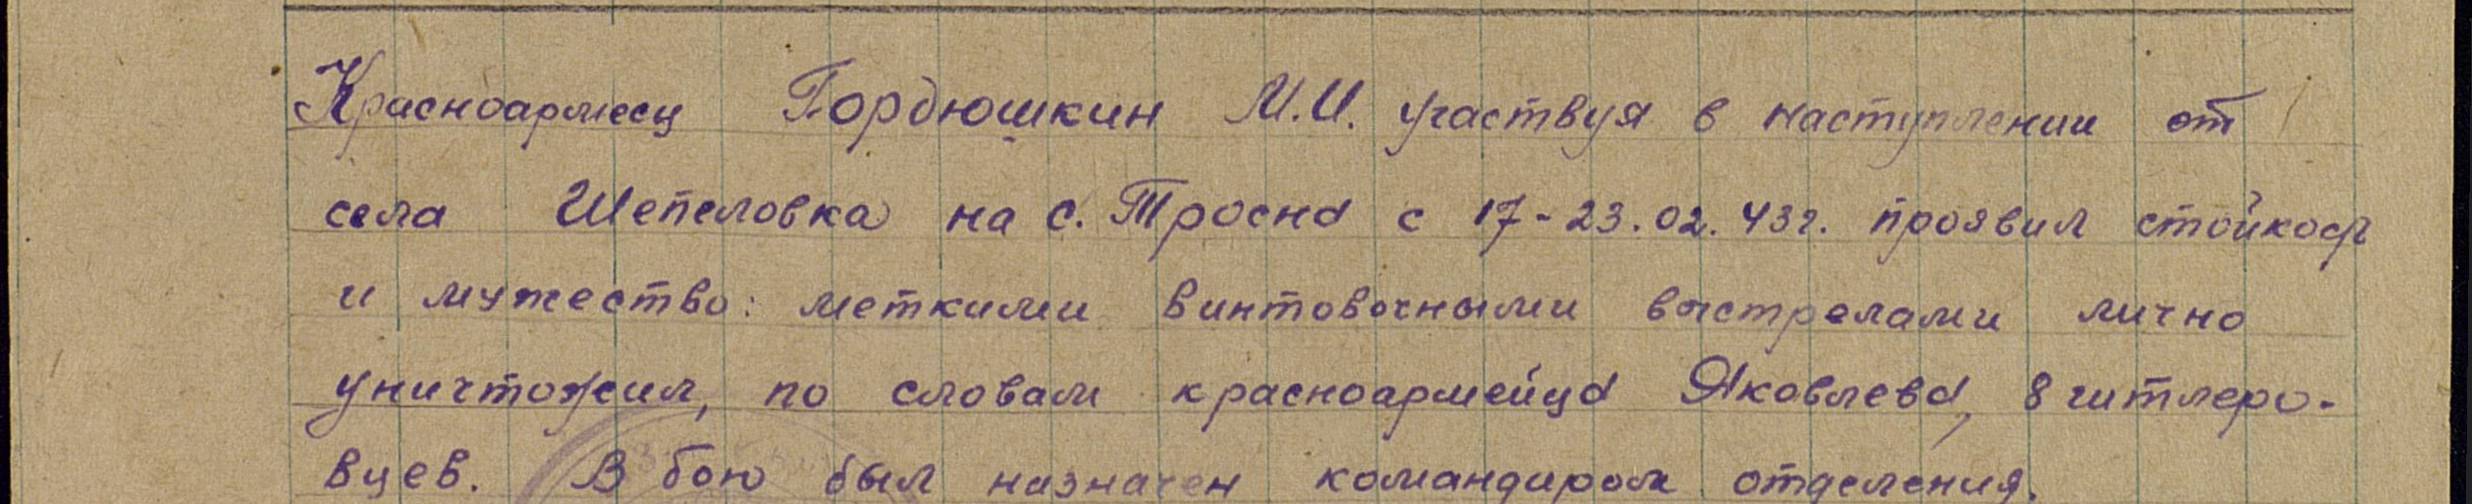 Красноармеец Гордюшкин М.И. участвуя в наступлении от
села Шепеловка на с. Тросна с 17-23.02.43г. проявил стойкость
и мужество: меткими винтовочными выстрелами лично
уничтожил, по словам красноармейца Яковлева, 8 гитлеро-
вцев. В бою был назначен командиром отделения.